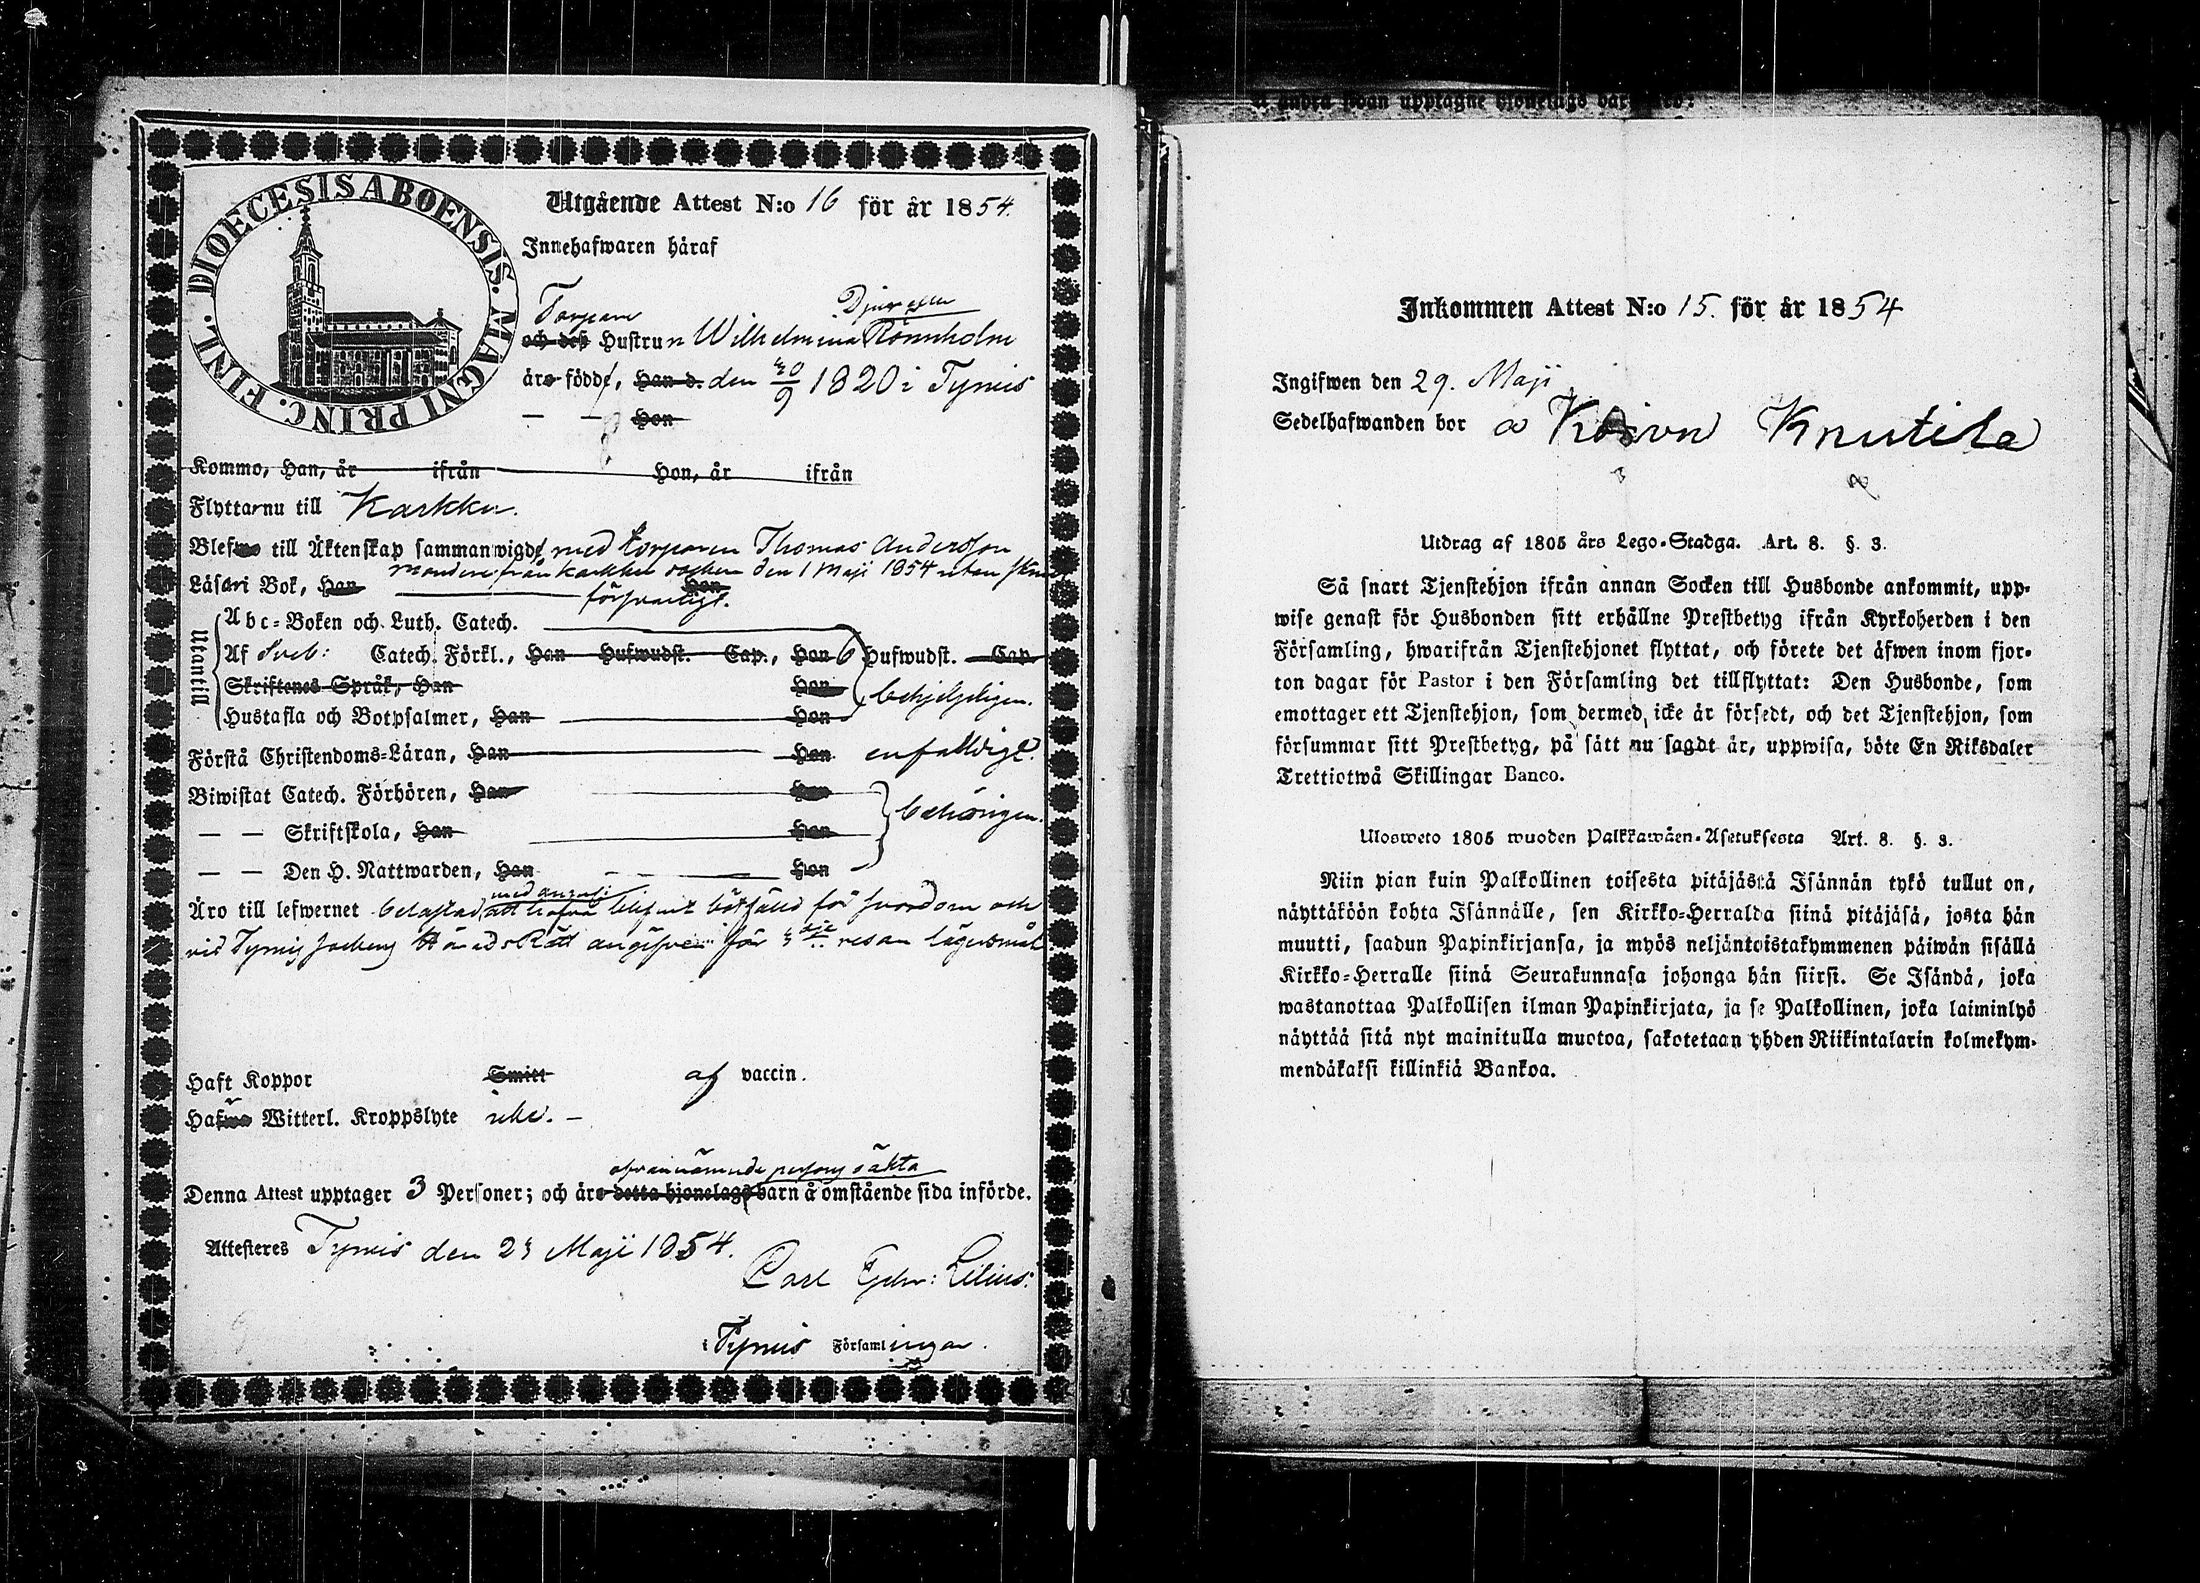 DIOECESIS ABOENSIS. MAGNI PRINC. FINL.
Utgående Attest N:o 16 för år 1854.
Innehafwaren häraf
Torpare
och deß Hustrun Wilhelmina Rönnholm
äro född, Han d. den 30/9 1820 i Tyrvis
— — Hon
Kommo, Han, år ifrån Hon, år ifrån
Flyttar nu till Karkku.
Blefwo till Äktenskap sammanwigd med torparen Thomas Andersson
från Karkku socken den 1 Maji 1854 utan
Läsa i Bok, Han Hon
försvarligt.
Utantill
Abc-Boken och Luth. Catech.
Af Sveb: Catech. Förkl., Han Hufwudst. Cap., Hon 6 Hufwudst. Cap.
Skriftenes Språk, Han Hon behjelpligen.
Hustafla och Botpsalmer, Han Hon
Förstå Christendoms-Läran, Han Hon enfaldigt.
Biwistat Catech. Förhören, Han Hon
behörigen.
— — Skriftskola, Han Hon
— — Den H. Nattwarden, Han Hon
Äro till lefwernet belastad att hafva blifvit bötfälld för hordom och
vid Tyrvis sockens Härads Rätt angifven för 3dje resan lägersmål
Haft Koppor Smitt af vaccin.
Hafwa Witterl. Kroppslyte icke. —
ofvannämnde persons äkta
Denna Attest upptager 3 Personer; och äro detta hjonelags barn å omstående sida införde.
Attesteras Tyrvis den 23 Maji 1854.
Carl Lilius.
i Tyrvis Församlingar.
Inkommen Attest N:o 15. för år 1854
Ingifwen den 29. Maji
Sedelhafwanden bor å Knutila
Utdrag af 1805 års Lego-Stadga. Art. 8. §. 3.
Så snart Tjenstehjon ifrån annan Socken till Husbonde ankommit, upp-
wise genast för Husbonden sitt erhållne Prestbetyg ifrån Kyrkoherden i den
Församling, hwarifrån Tjenstehjonet flyttat, och förete det äfwen inom fjor-
ton dagar för Pastor i den Församling det tillflyttat: Den Husbonde, som
emottager ett Tjenstehjon, som dermed icke är försedt, och det Tjenstehjon, som
försummar sitt Prestbetyg, på sätt nu sagdt är, uppwisa, böte En Riksdaler
Trettiotwå Skillingar Banco.
Ulosweto 1805 wuoden Palkkawäen-Asetuksesta Art. 8. §. 3.
Niin pian kuin Palkollinen toisesta pitäjästä Isännän tykö tullut on,
näyttäköön kohta Isännälle, sen Kirkko-Herralda siinä pitäjäsä, josta hän
muutti, saadun Papinkirjansa, ja myös neljäntoistakymmenen päiwän sisällä
Kirkko-Herralle siinä Seurakunnasa johonga hän siirsi. Se Isändä, joka
wastanottaa Palkollisen ilman Papinkirjata, ja se Palkollinen, joka laiminlyö
näyttää sitä nyt mainitulla muotoa, sakotetaan yhden Riikintalarin kolmekym-
mendäkaksi killinkiä Bankoa.